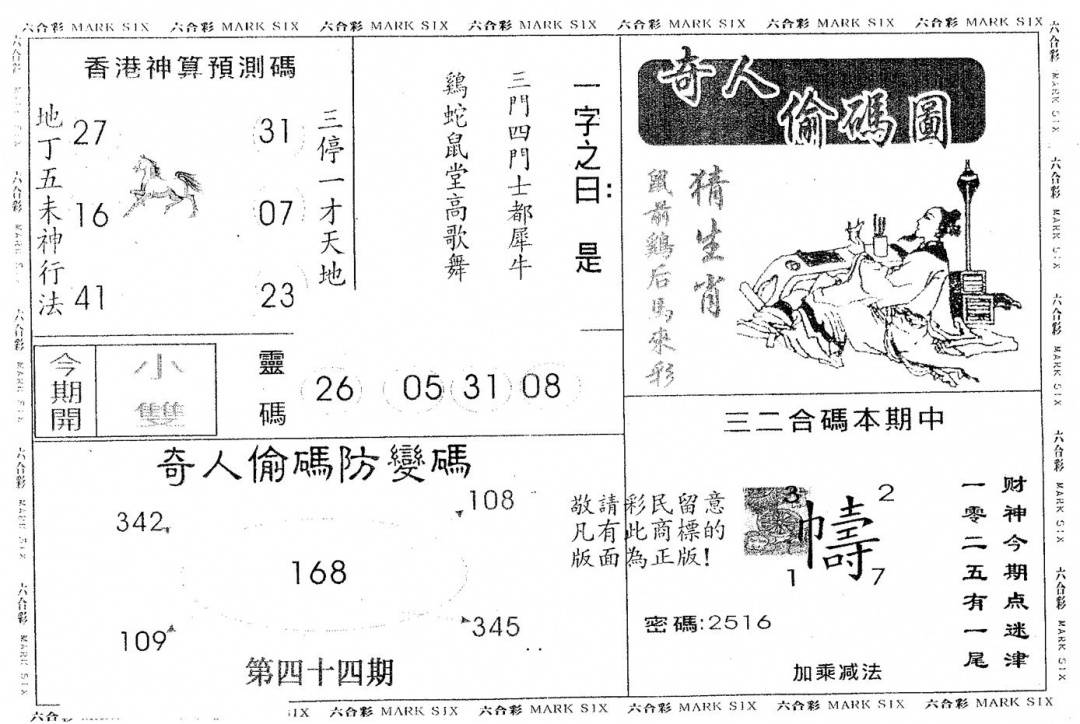 六合彩 MARK SIX 六合彩 MARK SIX 六合彩 MARK SIX 六合彩 MARK SIX 六合彩 MARK SIX 六合彩 MARK SIX 六合彩 MARK SIX
香港神算預測碼
地丁五未神行法
27
31
16
07
41
23
三停一才天地
鷄蛇鼠堂高歌舞
三門四門士都犀牛
一字之曰：是
奇人
偷碼圖
猜生肖
鼠前鷄后馬來彩
今期開
小雙
靈碼
26 05 31 08
奇人偷碼防變碼
342
108
168
109
345
第四十四期
三二合碼本期中
敬請彩民留意
凡有此商標的
版面為正版!
3
2
幬
1
7
密碼:2516
加乘减法
财神今期点迷津
一零二五有一尾
六合彩 MARK SIX 六合彩 MARK SIX 六合彩 MARK SIX 六合彩 MARK SIX 六合彩 MARK SIX